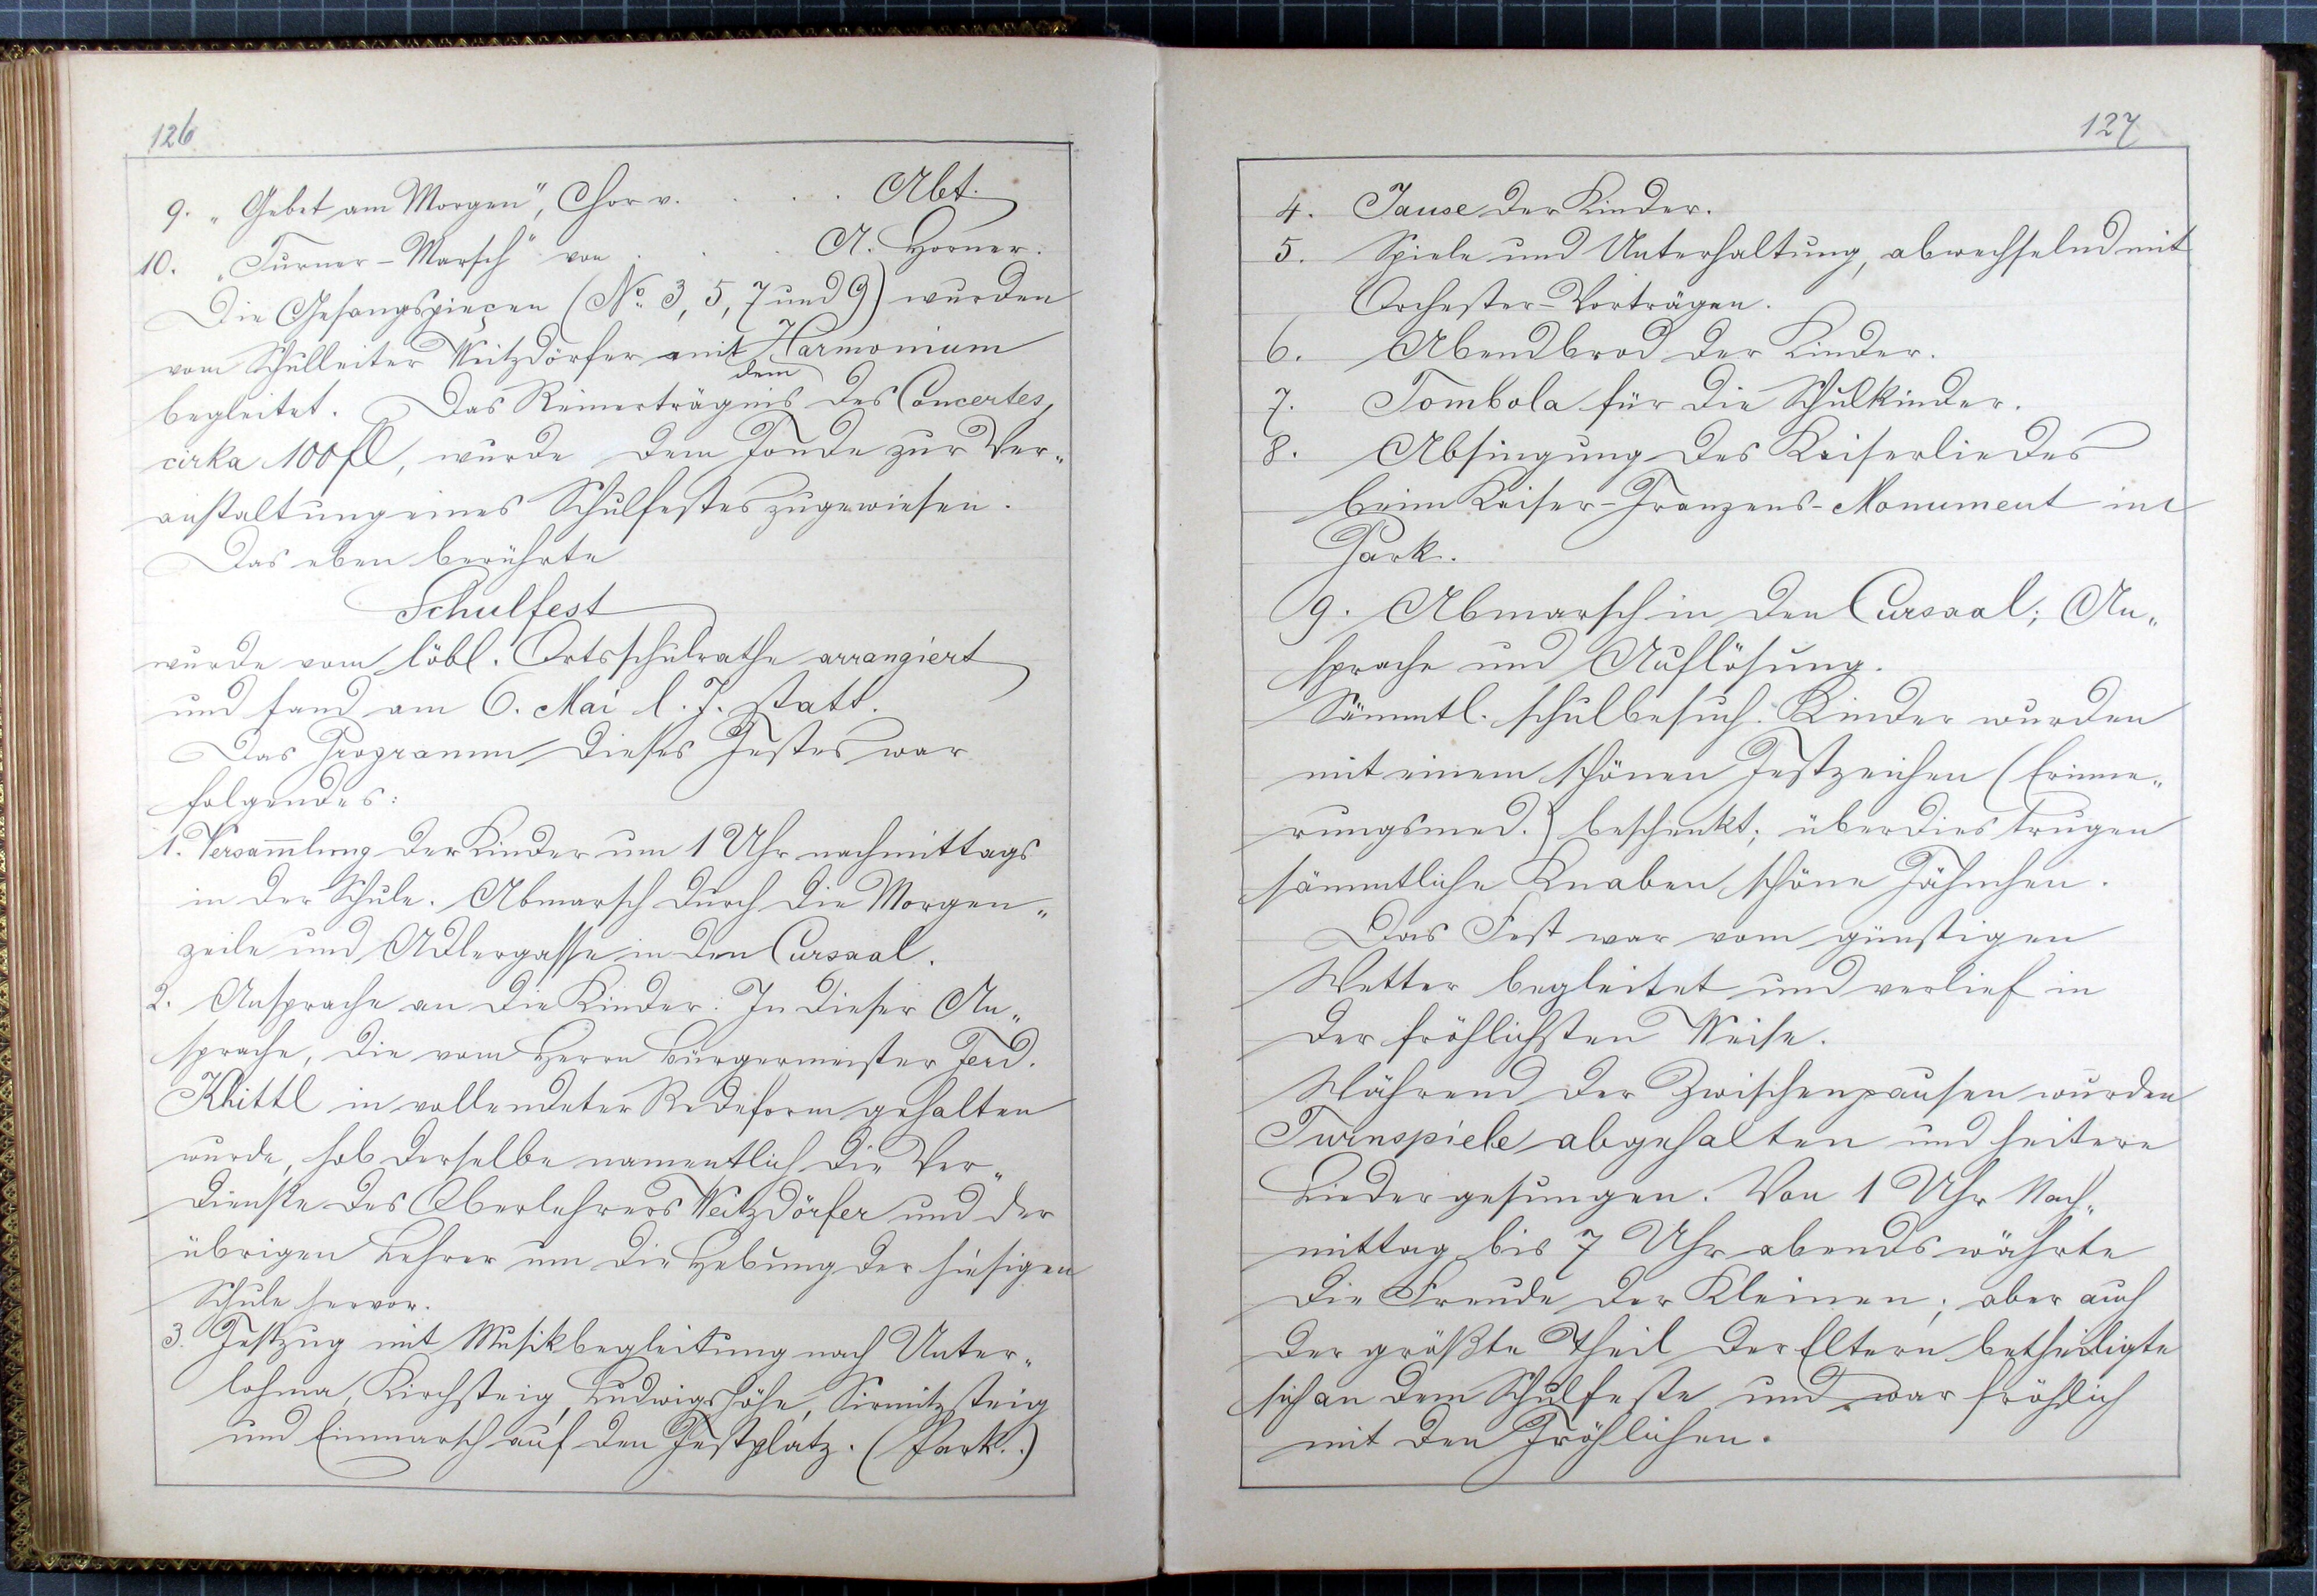 126
9. „Gebet am Morgen", Chor v. . . . Abt.
10. „Turner-Marsch" von . . . A. Horner.
Die Gesangspieçen (No. 3, 5, 7 und 9) wurden
vom Schulleiter Weitzdörfer mit Harmonium
dem
begleitet. Das Reinerträgnis des Concertes,
cirka 100 fl, wurde dem Fonde zur Ver„
anstaltung eines Schulfestes zugewiesen.
Das eben berührte
Schulfest
wurde vom löbl. Ortsschulrathe arrangiert
und fand am 6. Mai l. J. statt.
Das Programm dieses Festes war
folgendes:
1. Versam̄lung der Kinder um 1 Uhr nachmittags
in der Schule. Abmarsch durch die Morgen„
zeile und Adlergasse in den Cursaal.
2. Ansprache an die Kinder. In dieser An„
sprache, die vom Herrn Bürgermeister Ferd.
Khittl in vollendeter Redeform gehalten
wurde, hob derselbe namentlich die Ver„
dienste des Oberlehrers Weitzdörfer und der
übrigen Lehrer um die Hebung der hiesigen
Schule hervor.
3. Festzug mit Musikbegleitung nach Unter„
lohma, Kirchsteig, Ludwigshöhe, Sirmitzsteig
und Einmarsch auf den Festplatz. (Park.)
127
4. Jause der Kinder.
5. Spiele und Unterhaltung, abwechselnd mit
Orchester-Vorträgen.
6. Abendbrod der Kinder.
7. Tombola für die Schulkinder.
8. Absingung des Kaiserliedes
beim Kaiser-Franzens-Monument im
Park.
9. Abmarsch in den Cursaal; An„
sprache und Auflösung.
Sämmtl. schulbesuch. Kinder wurden
mit einem schönen Festzeichen (Erinne„
rungsmed.) beschenkt; überdies trugen
sämmtliche Knaben schöne Fähnchen.
Das Fest war vom günstigen
Wetter begleitet und verlief in
der fröhlichsten Weise.
Während der Zwischenpausen wurden
Turnspiele abgehalten und heitere
Lieder gesungen. Von 1 Uhr Nach„
mittag bis 7 Uhr abends währte
die Freude der Kleinen; aber auch
der größte Theil der Eltern betheiligte
sich an dem Schulfeste und war fröhlich
mit den Fröhlichen.